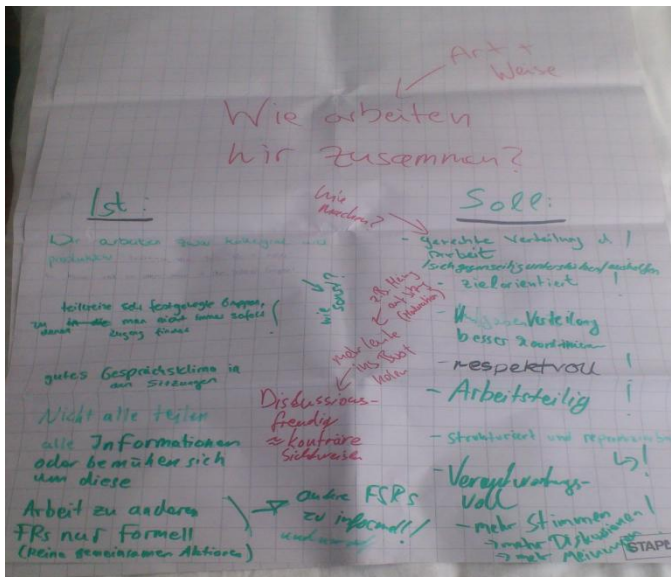 Art +
Weise
Wie arbeiten
wir zusammen?
Ist:
Wir arbeiten zwar
produktiv
teilweise sehr festgelegte Gruppen,
zu denen man nicht immer sofort
Zugang findet
gutes Gesprächsklima in
den Sitzungen
Nicht alle teilen
alle Informationen
oder bemühen sich
um diese
Arbeit zu anderen
FRs nur formell
(keine gemeinsamen Aktionen)
andere FSRs
zu informell!
wie
sonst?
z.B. Henry
mehr Leute
ins Boot
holen
Diskussions-
freudig
≈ konträre
Sichtweisen
wie
Soll:
- gerechte Verteilung d. !
Arbeit
/sich gegenseitig unterstützen/aushelfen
- zielorientiert !
- Aufgabenverteilung
besser koordinieren
- respektvoll !
- Arbeitsteilig !
- strukturiert und
- Verantwortungs-
voll
- mehr Stimmen !
→ mehr Diskussionen!
→ mehr Meinungen
STAPE